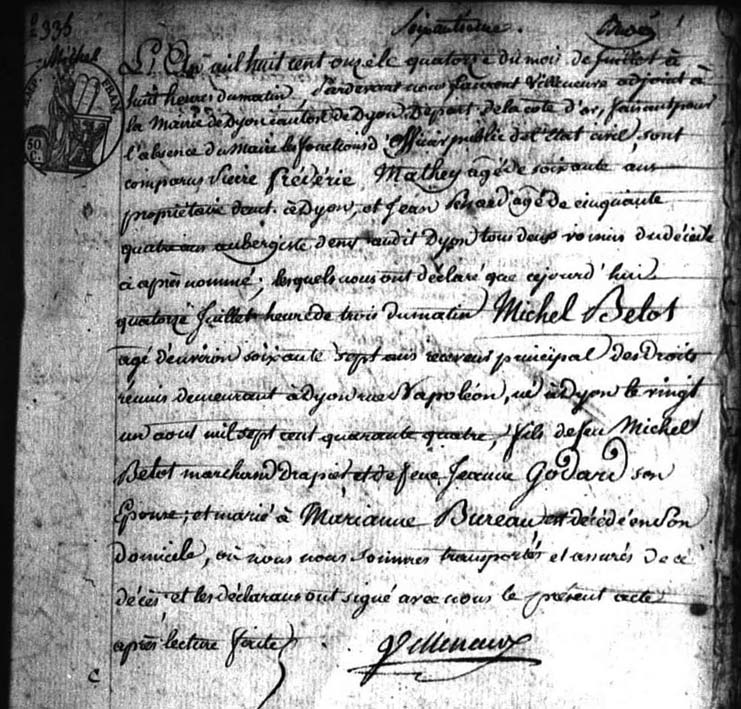 335
Michel
L'An mil huit cent onze le quatorze du mois de Juillet à
huit heures du matin, Pardevant nous Laurent Villeneuve adjoint à
la Mairie de Dijon canton de Dijon, Départ. de la cote d'or, faisant pour
l'absence du Maire les fonctions d'officier public de l'Etat civil, sont
comparus Pierre Frédéric Mathey agé de soixante ans
propriétaire demt. à Dijon, et Jean agé de cinquante
quatre ans aubergiste demt audit Dijon tous deux voisins du décédé
ci après nommé; lesquels nous ont déclaré que cejourd'hui
quatorze Juillet heure de trois du matin Michel Belot
agé d'environ soixante sept ans receveur principal des Droits
réunis demeurant à Dijon rue Napoléon, né à Dijon le vingt
un aout mil sept cent quarante quatre, fils de feu Michel
Belot marchand Drapier et de feue Jeanne Godard son
Epouse; et marié à Marianne Bureau est décédé en Son
domicile, où nous nous sommes transportés et assurés de ce
décès et les déclarans ont signé avec nous le présent acte
après lecture faite
Villeneuve
FRAN
50
C.